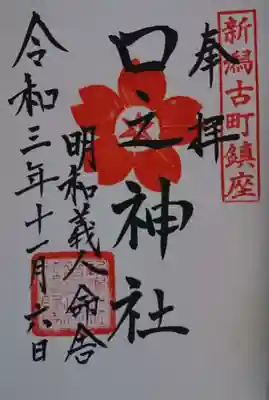 新潟古町鎮座
奉拝
口之神社
明和義人命舎
令和三年十一月六日